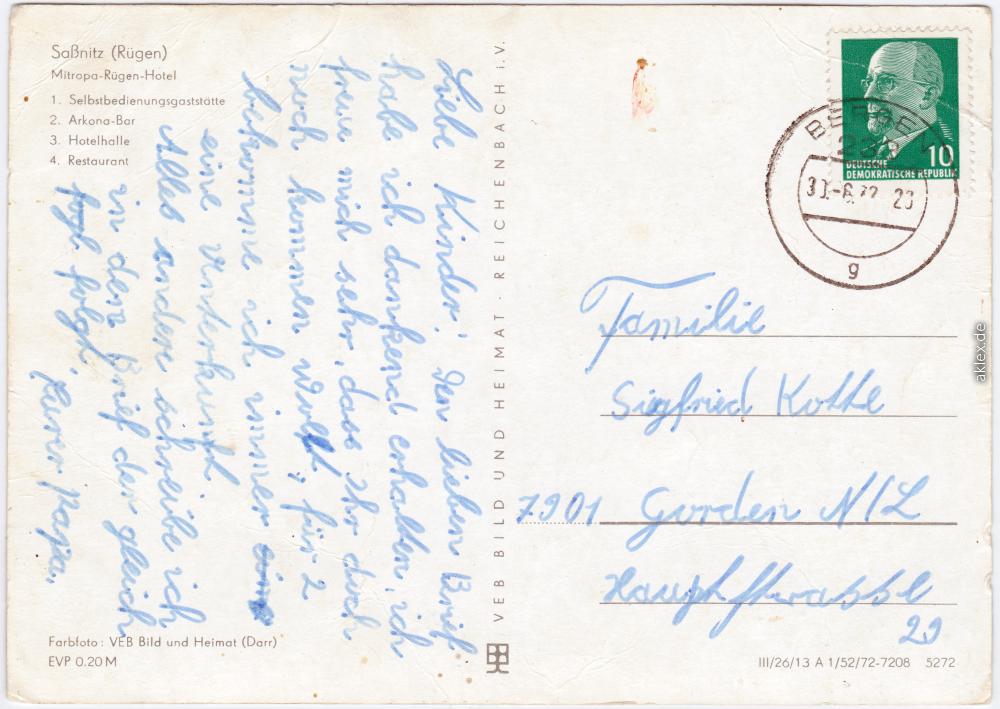 Saßnitz (Rügen)
Mitropa-Rügen-Hotel
1. Selbstbedienungsgaststätte
2. Arkona-Bar
3. Hotelhalle
4. Restaurant
Liebe Kinder! Den lieben Brief
habe ich dankend erhalten, ich
freue mich sehr, dass Ihr doch
noch kommen wollt, für 2
bekomme ich immer
eine Unterkunft.
Alles andere schreibe ich
in dem Brief der gleich
folgt.
Eurer Papa.
Farbfoto: VEB Bild und Heimat (Darr)
EVP 0.20 M
VEB BILD UND HEIMAT · REICHENBACH i. V.
10
DEUTSCHE
DEMOKRATISCHE REPUBLIK
BERGEN
238
30.-6.72 20
g
Familie
Siegfried Kotte
7901 Gorden N/L
Hauptstrasse
29
III/26/13 A 1/52/72-7208 5272
aklex.de